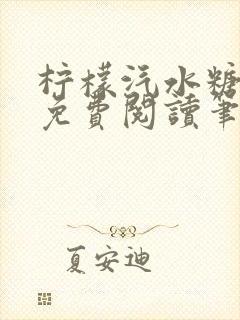 柠檬汽水糖
免費閱讀筆
夏安迪